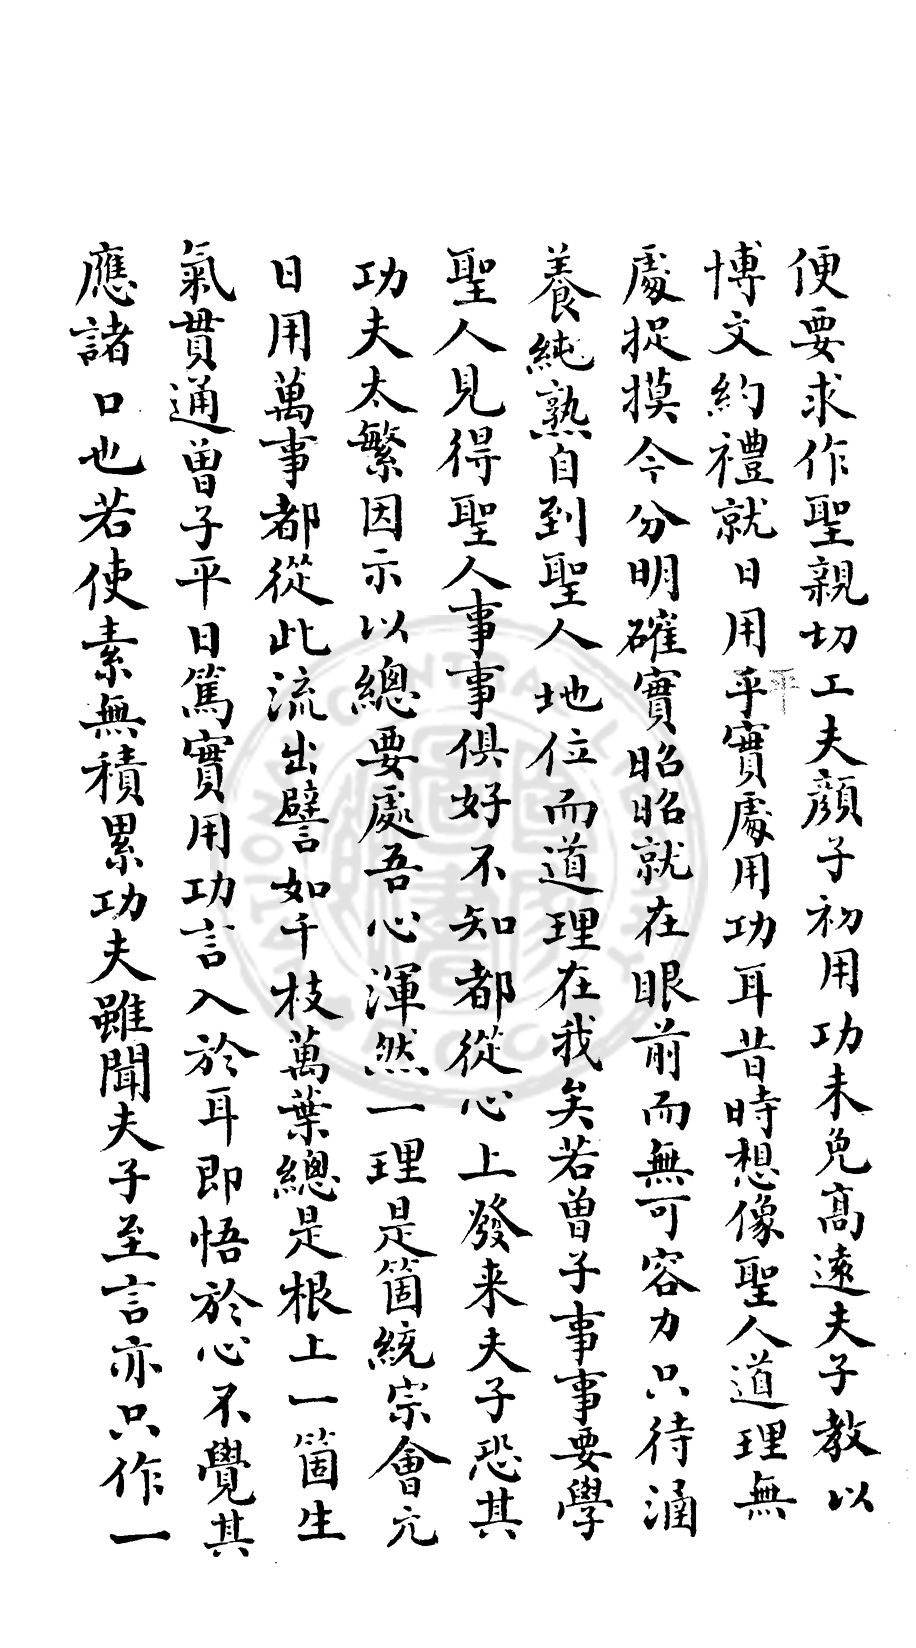 便要求作聖親切工夫顏子初用功未免高遠夫子教以
博文約禮就日用乎實處用功耳昔時想像聖人道理無
平
處捉摸今分明確實昭昭就在眼前而無可容力只待涵
養純熟自到聖人地位而道理在我矣若曾子事事要學
聖人見得聖人事事俱好不知都從心上發来夫子恐其
功夫太繁因示以總要處吾心渾然一理是箇統宗會元
日用萬事都從此流出譬如千枝萬葉總是根上一箇生
氣貫通曾子平日篤實用功言入於耳即悟於心不覺其
應諸口也若使素無積累功夫雖聞夫子至言亦只作一